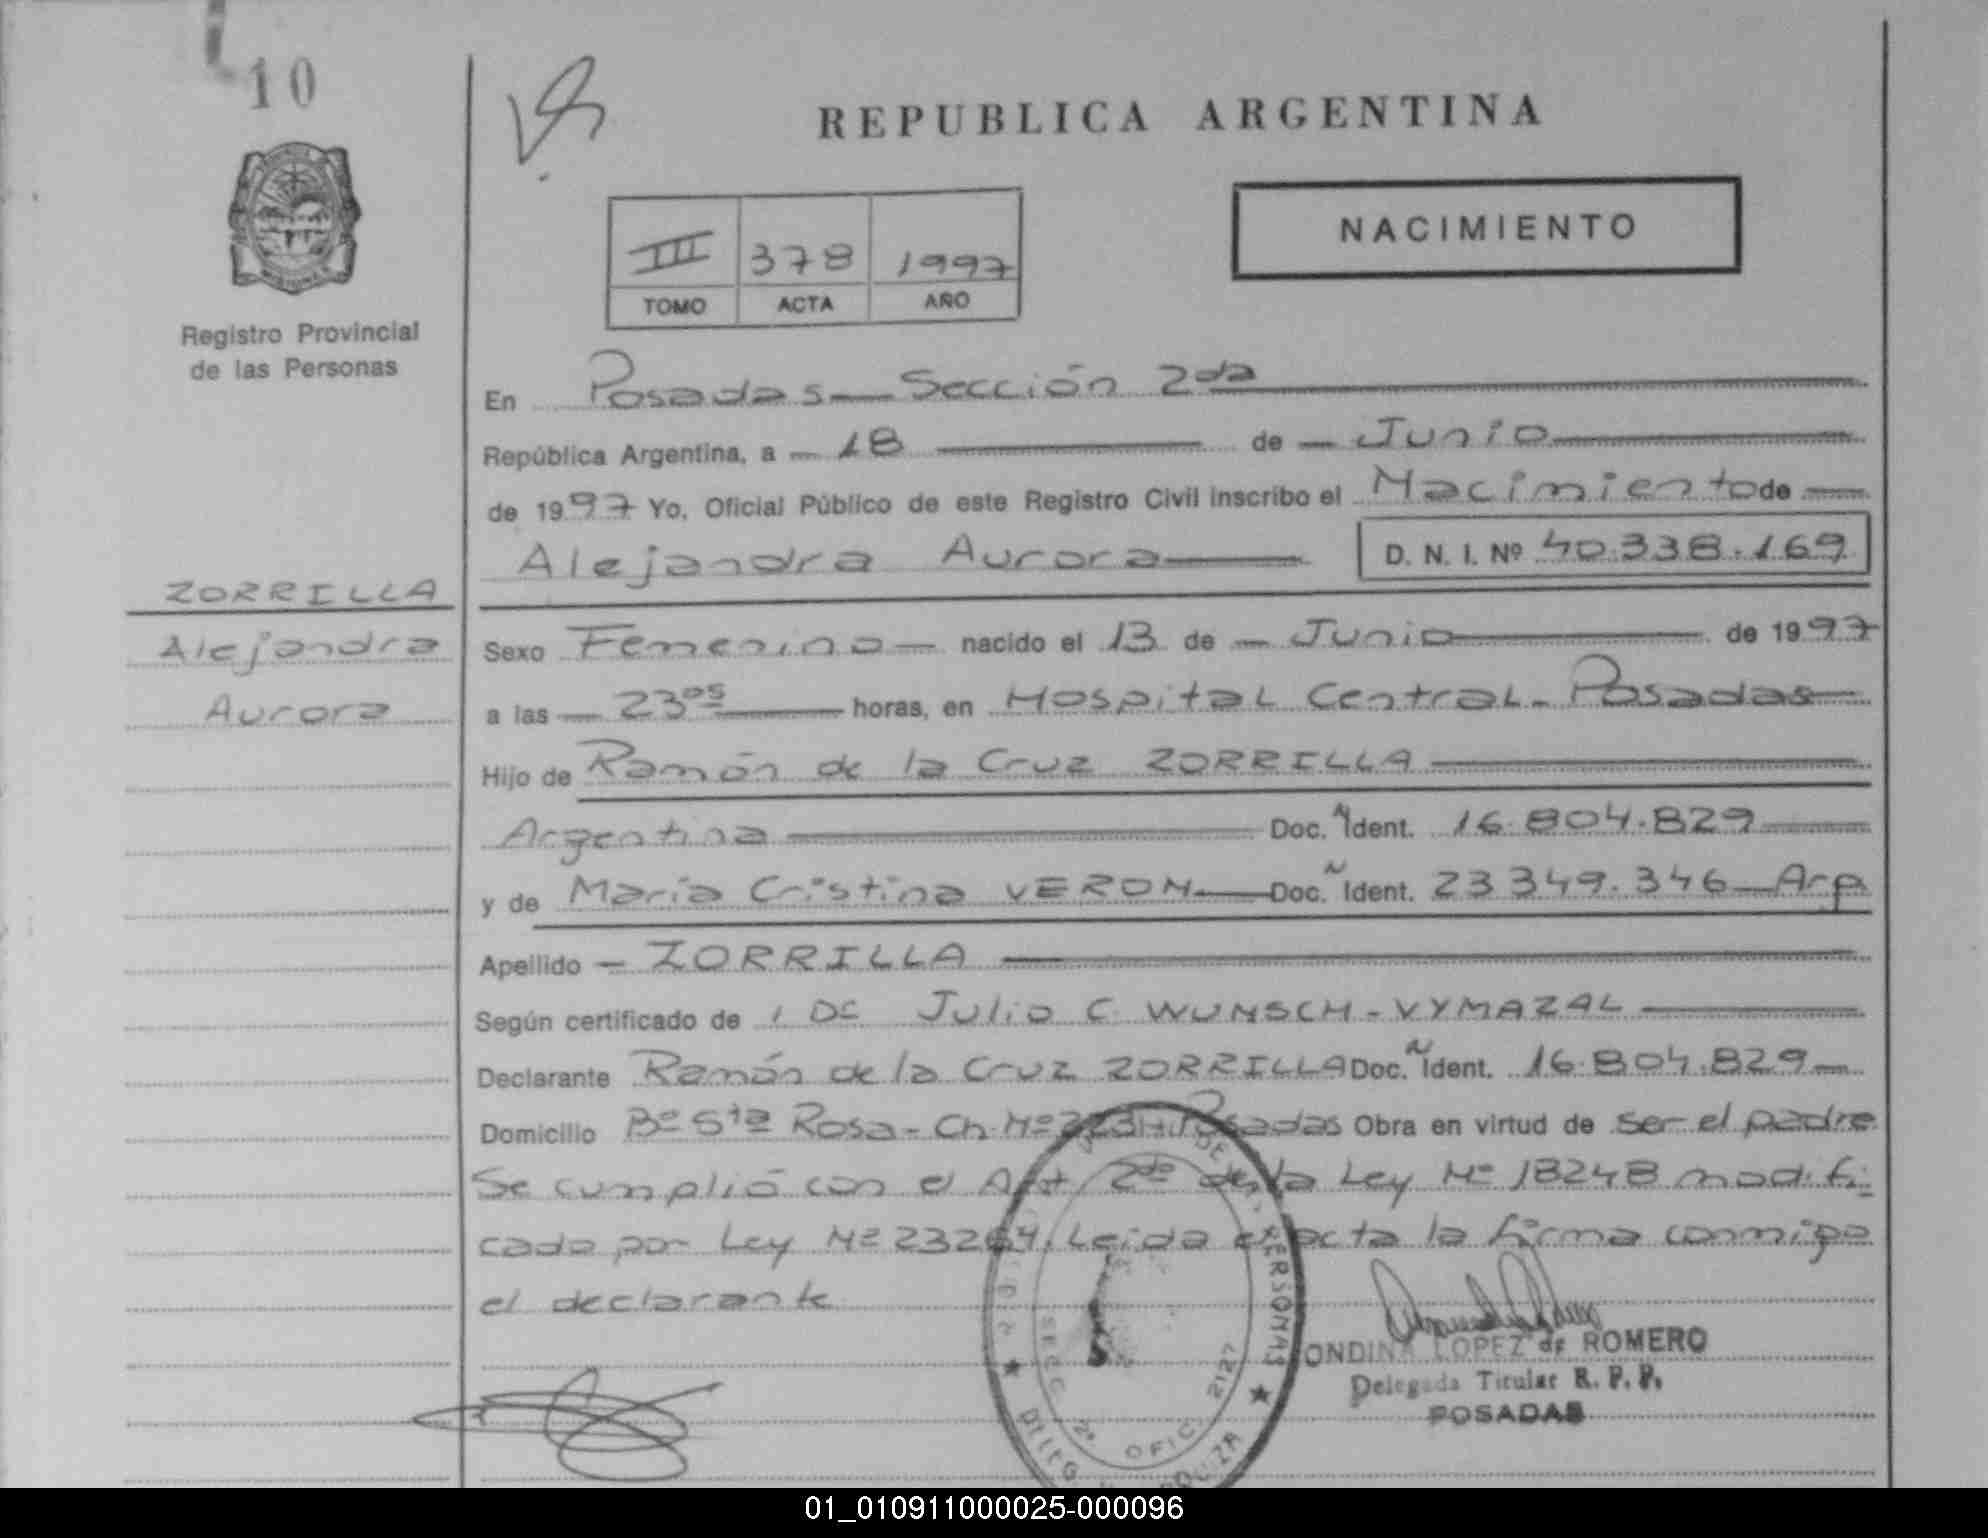 10
REPUBLICA ARGENTINA
NACIMIENTO
III 378 1997
TOMO ACTA AÑO
Registro Provincial
de las Personas
En Posadas - Sección 2da
República Argentina, a - 18 de - Junio
de 1997 Yo, Oficial Público de este Registro Civil inscribo el Nacimiento de
Alejandra Aurora D. N. I. Nº 40.338.169
ZORRILLA
Alejandra
Aurora
Sexo Femenino - nacido el 13 de - Junio de 1997
a las 23 05 horas, en Hospital Central - Posadas
Hijo de Ramón de la Cruz ZORRILLA
Argentina Doc. N Ident. 16.804.829
y de María Cristina VERON Doc. N Ident. 23.349.346 - Arg
Apellido - ZORRILLA
Según certificado de Julio C. WUNSCH - VYMAZAL
Declarante Ramón de la Cruz ZORRILLA Doc. N Ident. 16.804.829
Domicilio Bº Sta Rosa - Ch. Nº Posadas Obra en virtud de ser el padre
Se cumplió con el Art 2do de la Ley Nº 18248 modifi-
cado por Ley Nº 23264. Leída el acta la firma conmigo
el declarante
DE PERSONAS
SECC 2º OFIC. 2127
ONDINA LOPEZ de ROMERO
Delegada Titular R. P. P.
POSADAS
01_010911000025-000096